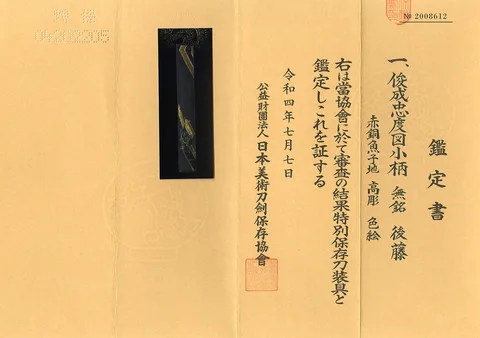 № 2008612
鑑定書
一、俊成忠度図小柄 無銘 後藤
赤銅魚子地 高彫 色絵
右は當協會に於て審査の結果特別保存刀装具と
鑑定しこれを証する
令和四年七月七日
公益財團法人 日本美術刀劍保存協會
特保